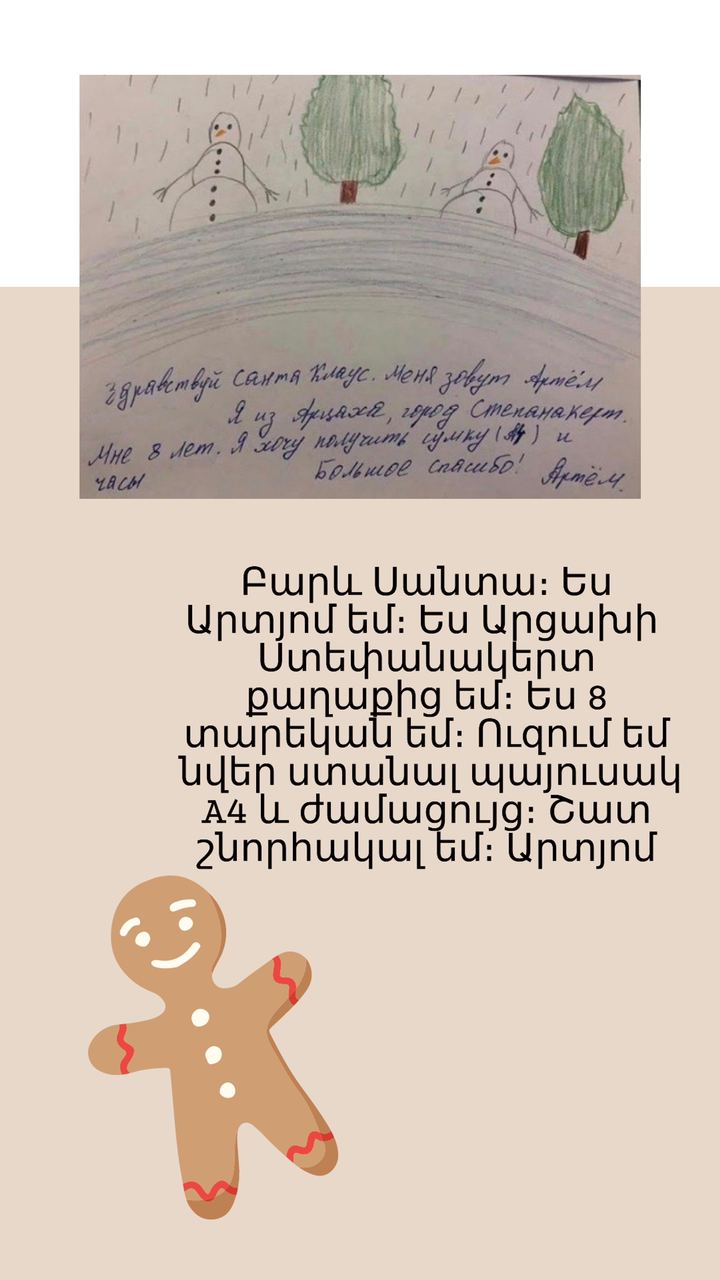 Здравствуй Санта Клаус. Меня зовут Артём
Я из Арцаха, город Степанакерт.
Мне 8 лет. Я хочу получить сумку ( ) и
часы Большое спасибо! Артём.
Բարև Սանտա։ Ես
Արտյոմ եմ։ Ես Արցախի
Ստեփանակերտ
քաղաքից եմ։ Ես 8
տարեկան եմ։ Ուզում եմ
նվեր ստանալ պայուսակ
A4 և ժամացույց։ Շատ
շնորհակալ եմ։ Արտյոմ